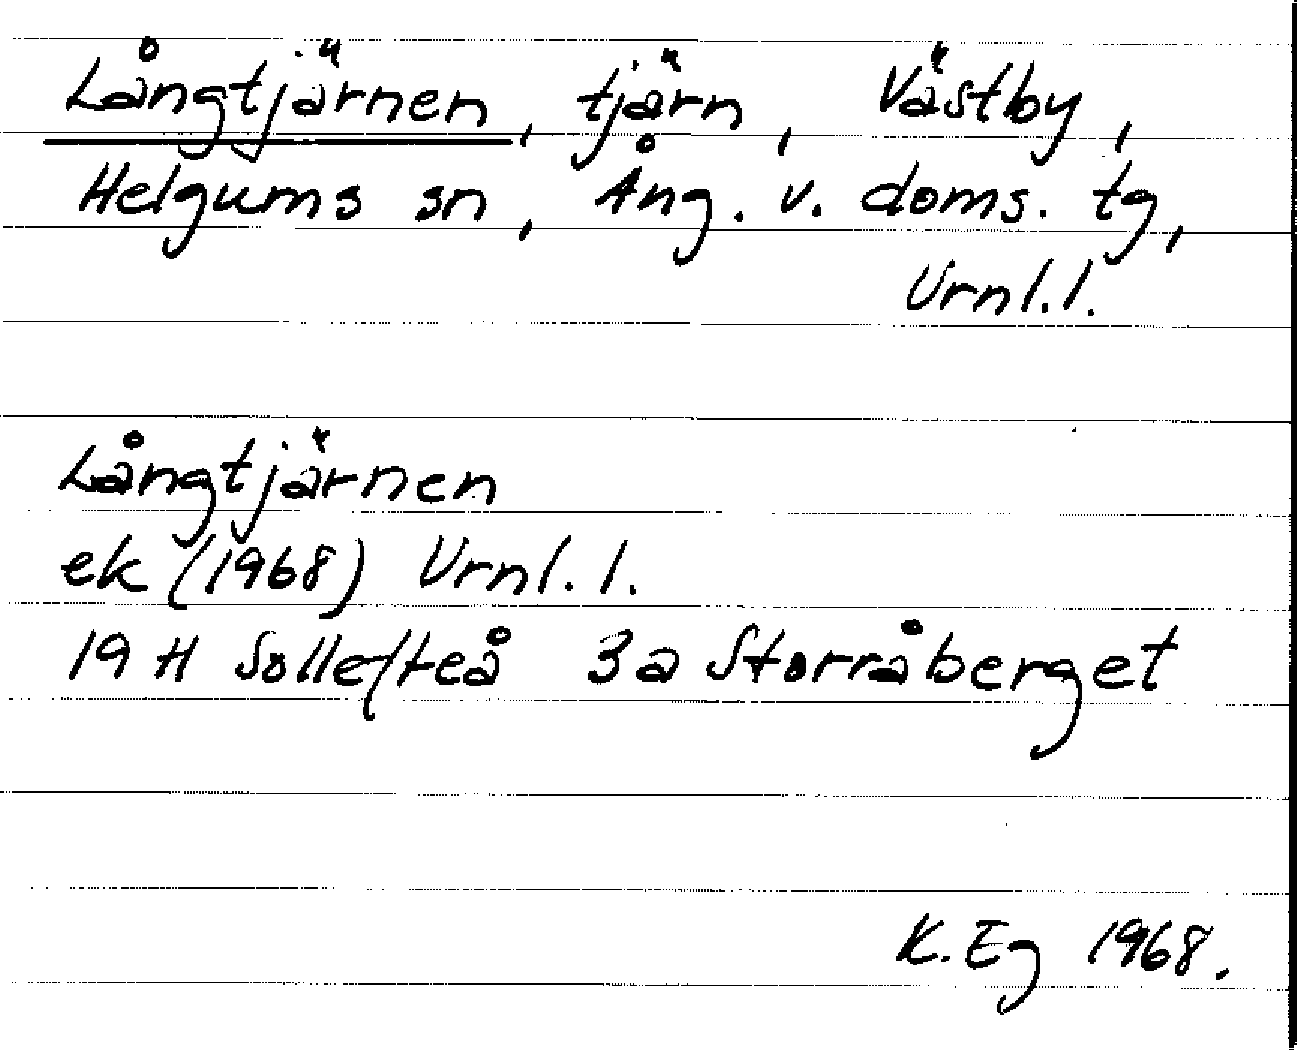 Långtjärnen, tjärn, Västby,
Helgums sn, Ång. v. doms. tg,
Urnl.l.
Långtjärnen
ek (1968) Urnl.l.
19 H Sollefteå 3a Storråberget
K. Eg 1968.